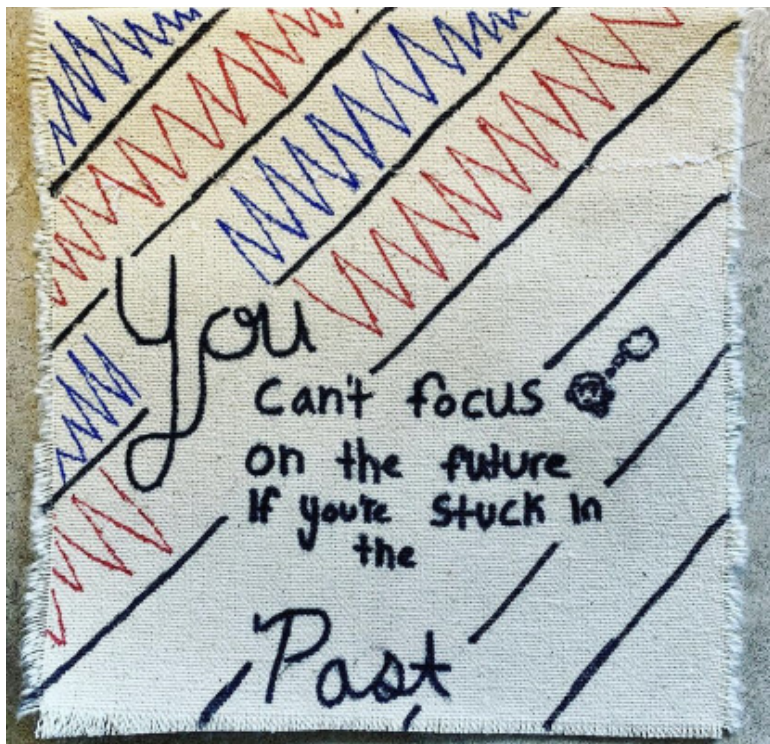 You
can't focus
on the future
If you're stuck in
the
Past